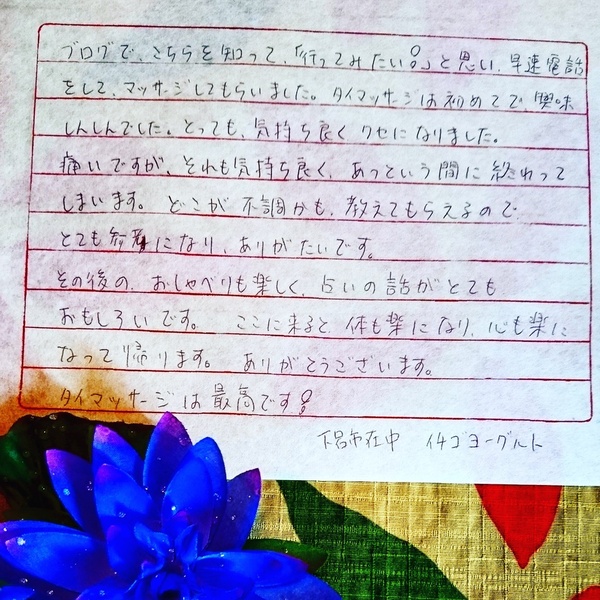 ブログで、こちらを知って、「行ってみたい!」と思い、早速電話
をして、マッサージしてもらいました。タイマッサージは初めてで、興味
しんしんでした。とっても、気持ち良く クセになりました。
痛いですが、それも気持ち良く、あっという間に終わって
しまいます。 どこが不調かも、教えてもらえるので
とても参考になり、ありがたいです。
その後の、おしゃべりも楽しく、占いの話がとても
おもしろいです。 ここに来ると、体も楽になり、心も楽に
なって帰ります。 ありがとうございます。
タイマッサージは最高です!
下呂市在中 イチゴヨーグルト